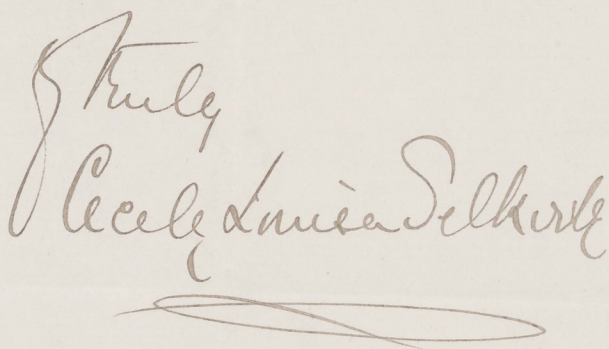 y truly
Cecely Louisa Selkirk